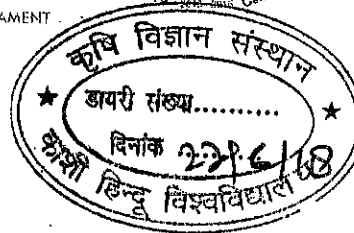 AMENT
कृषि विज्ञान संस्थान
डायरी संख्या...........
दिनांक 22/6/18
काशी हिन्दू विश्वविद्यालय